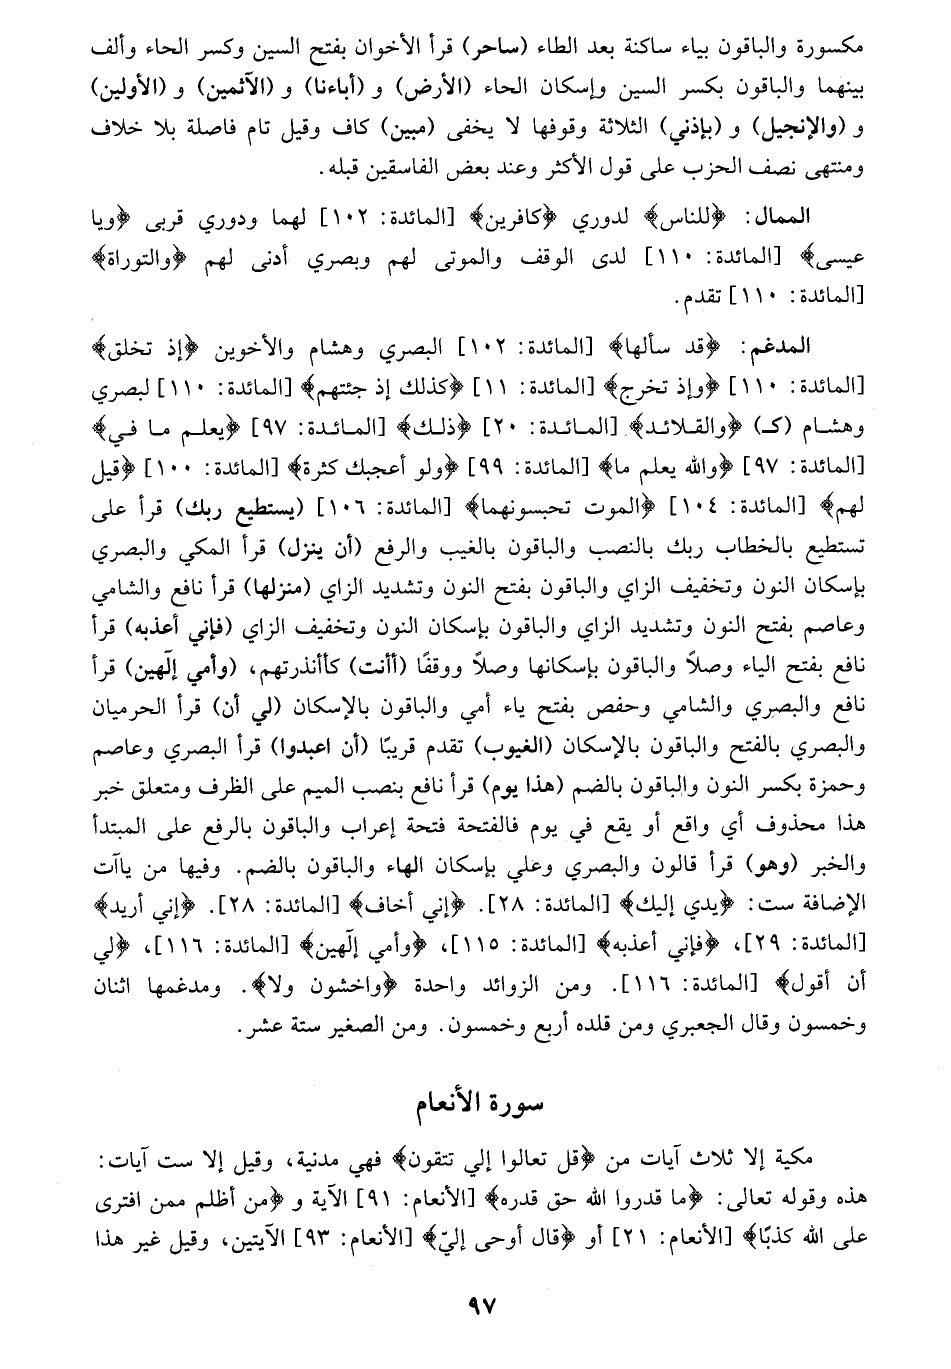 مكسورة والباقون بياء ساكنة بعد الطاء (ساحر) قرأ الأخوان بفتح السين وكسر الحاء وألف
بينهما والباقون بكسر السين وإسكان الحاء (الأرض) و (أباءنا) و (الآثمين) و (الأولين)
و (والإنجيل) و (بإذني) الثلاثة وقوفها لا يخفى (مبين) كاف وقيل تام فاصلة بلا خلاف
ومنتهى نصف الحزب على قول الأكثر وعند بعض الفاسقين قبله.
الممال: ﴿للناس﴾ لدوري ﴿كافرين﴾ [المائدة: ١٠٢] لهما ودوري قربى ﴿ويا
عيسى﴾ [المائدة: ١١٠] لدى الوقف والموتى لهم وبصري أدنى لهم ﴿والتوراة﴾
[المائدة: ١١٠] تقدم.
المدغم: ﴿قد سألها﴾ [المائدة: ١٠٢] البصري وهشام والأخوين ﴿إذ تخلق﴾
[المائدة: ١١٠] ﴿وإذ تخرج﴾ [المائدة: ١١] ﴿كذلك إذ جئتهم﴾ [المائدة: ١١٠] لبصري
وهشام (كـ) ﴿والقلائد﴾ [المائدة: ٢٠] ﴿ذلك﴾ [المائدة: ٩٧] ﴿يعلم ما في﴾
[المائدة: ٩٧] ﴿والله يعلم ما﴾ [المائدة: ٩٩] ﴿ولو أعجبك كثرة﴾ [المائدة: ١٠٠] ﴿قيل
لهم﴾ [المائدة: ١٠٤] ﴿الموت تحبسونهما﴾ [المائدة: ١٠٦] (يستطيع ربك) قرأ على
تستطيع بالخطاب ربك بالنصب والباقون بالغيب والرفع (أن ينزل) قرأ المكي والبصري
بإسكان النون وتخفيف الزاي والباقون بفتح النون وتشديد الزاي (منزلها) قرأ نافع والشامي
وعاصم بفتح النون وتشديد الزاي والباقون بإسكان النون وتخفيف الزاي (فإني أعذبه) قرأ
نافع بفتح الياء وصلاً والباقون بإسكانها وصلاً ووقفًا (أأنت) كأأنذرتهم، (وأمي إلٓهين) قرأ
نافع والبصري والشامي وحفص بفتح ياء أمي والباقون بالإسكان (لي أن) قرأ الحرميان
والبصري بالفتح والباقون بالإسكان (الغيوب) تقدم قريبًا (أن اعبدوا) قرأ البصري وعاصم
وحمزة بكسر النون والباقون بالضم (هذا يوم) قرأ نافع بنصب الميم على الظرف ومتعلق خبر
هذا محذوف أي واقع أو يقع في يوم فالفتحة فتحة إعراب والباقون بالرفع على المبتدأ
والخبر (وهو) قرأ قالون والبصري وعلي بإسكان الهاء والباقون بالضم. وفيها من ياآت
الإضافة ست: ﴿يدي إليك﴾ [المائدة: ٢٨]. ﴿إني أخاف﴾ [المائدة: ٢٨]. ﴿إني أريد﴾
[المائدة: ٢٩]، ﴿فإني أعذبه﴾ [المائدة: ١١٥]، ﴿وأمي إلٓهين﴾ [المائدة: ١١٦]، ﴿لي
أن أقول﴾ [المائدة: ١١٦]. ومن الزوائد واحدة ﴿واخشون ولا﴾. ومدغمها اثنان
وخمسون وقال الجعبري ومن قلده أربع وخمسون. ومن الصغير ستة عشر.
سورة الأنعام
مكية إلا ثلاث آيات من ﴿قل تعالوا إلي تتقون﴾ فهي مدنية، وقيل إلا ست آيات:
هذه وقوله تعالى: ﴿ما قدروا الله حق قدره﴾ [الأنعام: ٩١] الآية و ﴿من أظلم ممن افترى
على الله كذبًا﴾ [الأنعام: ٢١] أو ﴿قال أوحى إليّ﴾ [الأنعام: ٩٣] الآيتين، وقيل غير هذا
٩٧